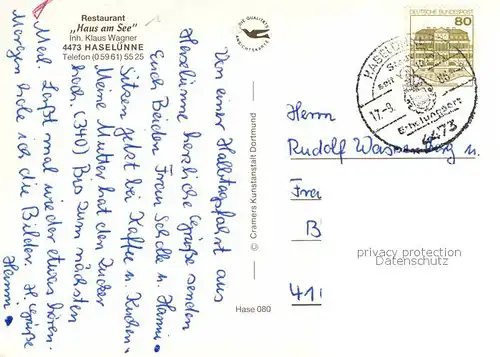 Restaurant
„Haus am See"
Inh. Klaus Wagner
4473 HASELÜNNE
Telefon (0 59 61) 55 25
DIE QUALITÄTS
ANSICHTSKARTE
Von einer Halbtagsfahrt aus
Haselünne herzliche Grüße senden
Euch Beiden Frau Scholle u. Hanni
Sitzen jetzt bei Kaffee u. Kuchen.
Meine Mutter hat den Zucker
hoch. (340) Bis zum nächsten
Mal. Laßt mal wieder etwas hören.
Morgen hole ich die Bilder. H. Grüße
Hanni
© Cramers Kunstanstalt Dortmund
Hase 080
DEUTSCHE BUNDESPOST
80
17.-9.
Erholungsort
4473
Herrn
Rudolf u.
Frau
B
41
privacy protection
Datenschutz